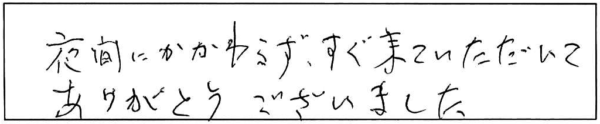 夜間にかかわらず、すぐ来ていただいて
ありがとうございました